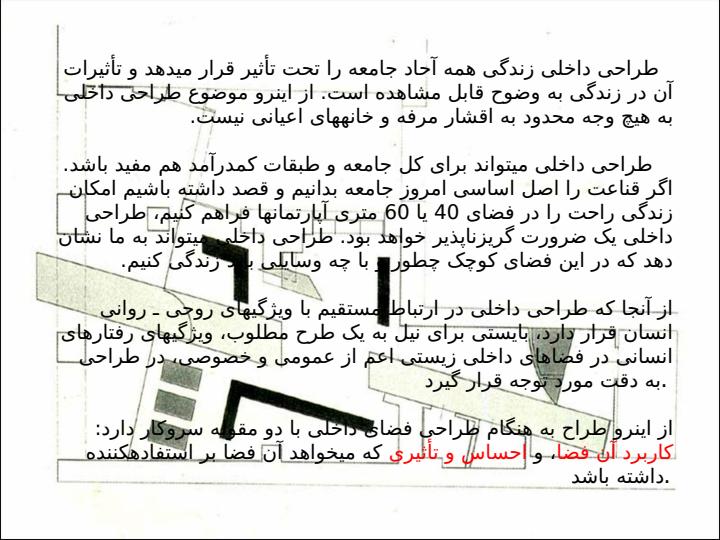 طراحی داخلی زندگی همه آحاد جامعه را تحت تأثیر قرار میدهد و تأثیرات
آن در زندگی به وضوح قابل مشاهده است. از اینرو موضوع طراحی داخلی
به هیچ وجه محدود به اقشار مرفه و خانههای اعیانی نیست.
طراحی داخلی میتواند برای کل جامعه و طبقات کمدرآمد هم مفید باشد.
اگر قناعت را اصل اساسی امروز جامعه بدانیم و قصد داشته باشیم امکان
زندگی راحت را در فضای 40 یا 60 متری آپارتمانها فراهم کنیم، طراحی
داخلی یک ضرورت گریزناپذیر خواهد بود. طراحی داخلی میتواند به ما نشان
دهد که در این فضای کوچک چطور و با چه وسایلی باید زندگی کنیم.
از آنجا که طراحی داخلی در ارتباط مستقیم با ویژگیهای روحی ـ روانی
انسان قرار دارد، بایستی برای نیل به یک طرح مطلوب، ویژگیهای رفتارهای
انسانی در فضاهای داخلی زیستی اعم از عمومی و خصوصی، در طراحی
به دقت مورد توجه قرار گیرد.
از اینرو طراح به هنگام طراحی فضای داخلی با دو مقوله سروکار دارد:
کاربرد آن فضا، و احساس و تأثیری که میخواهد آن فضا بر استفادهکننده
داشته باشد.